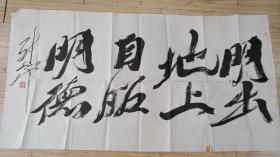 明出
地上
自昭
明德